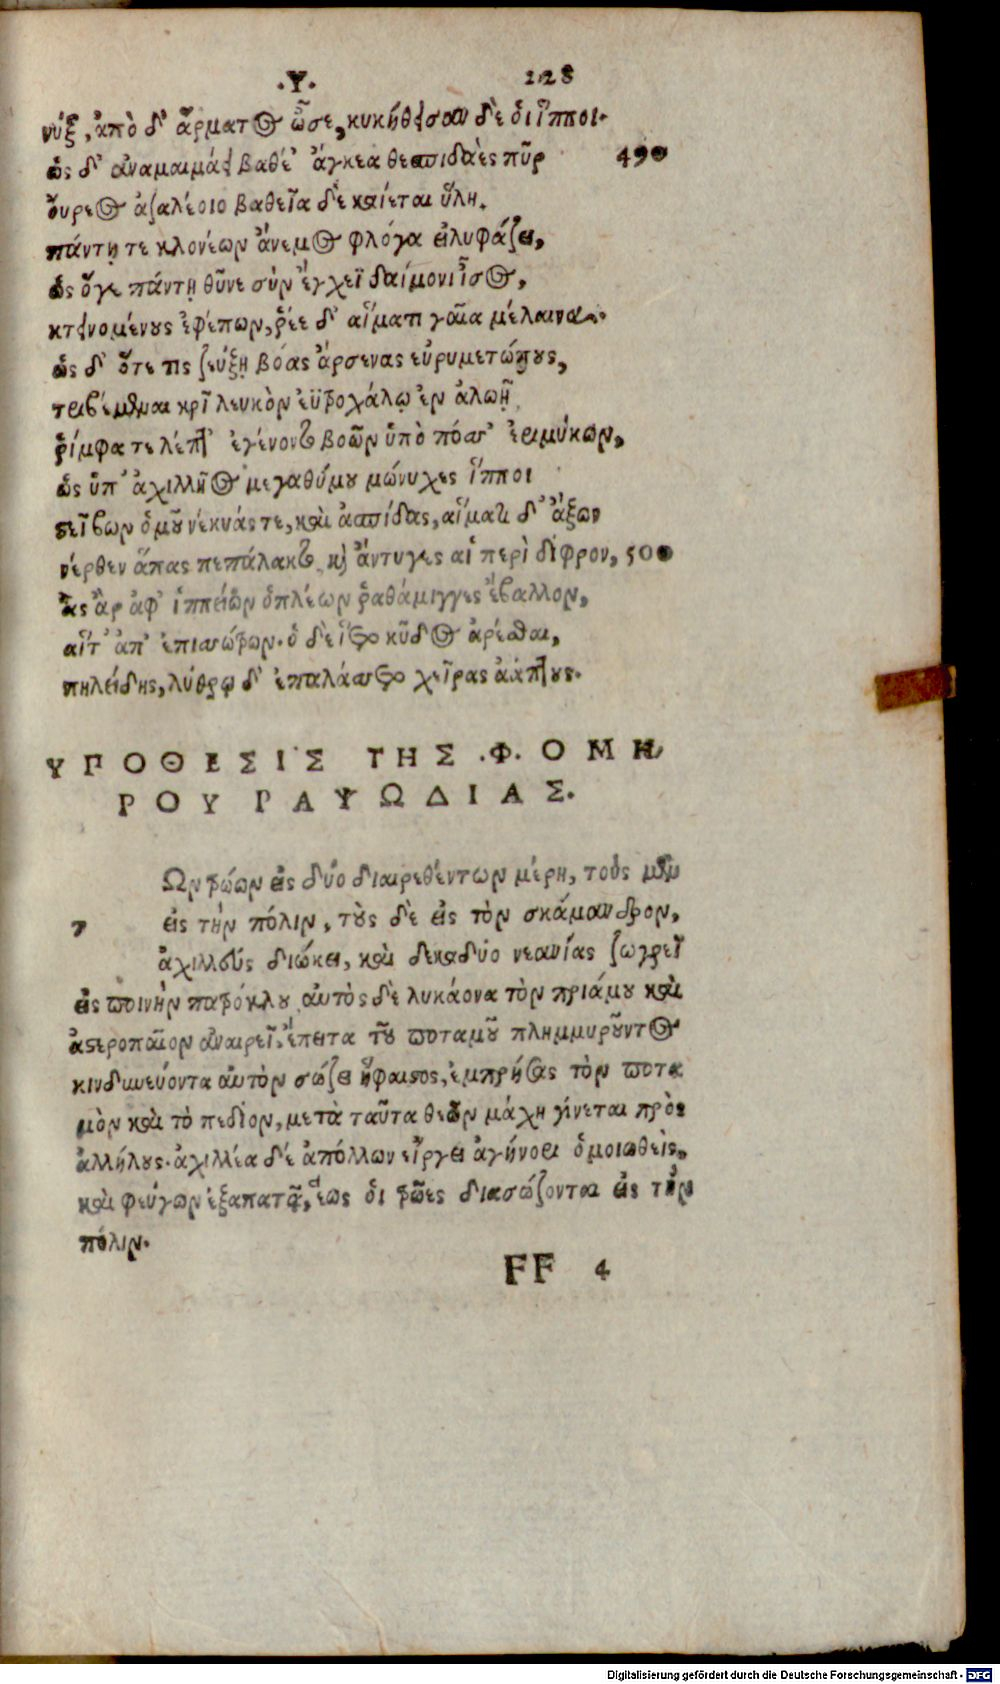 .Υ. 228
νύξ, ἀπὸ δ' ἅρματος ὦσε, κυκήθησαν δὲ ὁι ἵπποι.
ὡς δ' ἀναμαιμάει βαθέ' ἄγκεα θεσπιδαὲς πῦρ 490
ὄυρεος ἀζαλέοιο βαθεῖα δὲ καίεται ὕλη.
πάντῃ τε κλονέων ἄνεμος φλόγα εἰλυφάζει,
ὡς ὅγε πάντῃ θῦνε σὺν ἔγχεϊ δαίμονι ἶσος,
κτεινομένους ἐφέπων, ῥέε δ' αἵματι γαῖα μέλαινα.
ὡς δ' ὅτε τις ζεύξῃ βόας ἄρσενας εὐρυμετώπους,
τριβέμεναι κρῖ λευκὸν ἐϋτροχάλῳ ἐν ἀλωῇ
ῥίμφα τε λέπτ' ἐγένοντο βοῶν ὑπὸ πόσσ' ἐριμύκων,
ὡς ὑπ' ἀχιλλῆος μεγαθύμου μώνυχες ἵπποι
στεῖβων ὁμοῦ νέκυάς τε, καὶ ἀσπίδας, αἵματι δ' ἄξων
νέρθεν ἅπας πεπάλακτο καὶ ἄντυγες αἱ περὶ δίφρον, 500
ἃς ἂρ ἀφ' ἱππείων ὁπλέων ῥαθάμιγγες ἔβαλλον,
αἵτ' ἀπ' ἐπισσώτρων. ὁ δὲ ἵετο κῦδος ἀρέσθαι,
πηλείδης, λύθρῳ δ' ἐπαλάσσετο χεῖρας ἀάπτους.
ΥΠΟΘΕΣΙΣ ΤΗΣ .Φ. ΟΜΗ
ΡΟΥ ΡΑΨΩΔΙΑΣ.
Ων τρώων εἰς δύο διαιρεθέντων μέρη, τοὺς μὲν
τ εἰς τὴν πόλιν, τοὺς δὲ εἰς τὸν σκάμανδρον,
ἀχιλλεὺς διώκει, καὶ δεκαδύο νεανίας ζωγρεῖ
εἰς ποινὴν πατρόκλου αὐτὸς δὲ λυκάονα τὸν πριάμου καὶ
ἀστεροπαῖον ἀναιρεῖ. ἔπειτα τοῦ ποταμοῦ πλημμυροῦντος
κινδυνεύοντα αὐτὸν σώζει ἥφαιστος, ἐμπρήσας τὸν ποτα
μὸν καὶ τὸ πεδίον, μετὰ ταῦτα θεῶν μάχη γίνεται πρὸς
ἀλλήλους. ἀχιλλέα δὲ ἀπόλλων εἴργει ἀγήνορι ὁμοιωθεὶς,
καὶ φεύγων ἐξαπατᾷ, ἕως ὁι τρῶες διασώζονται εἰς τὴν
πόλιν.
FF 4
Digitalisierung gefördert durch die Deutsche Forschungsgemeinschaft - DFG